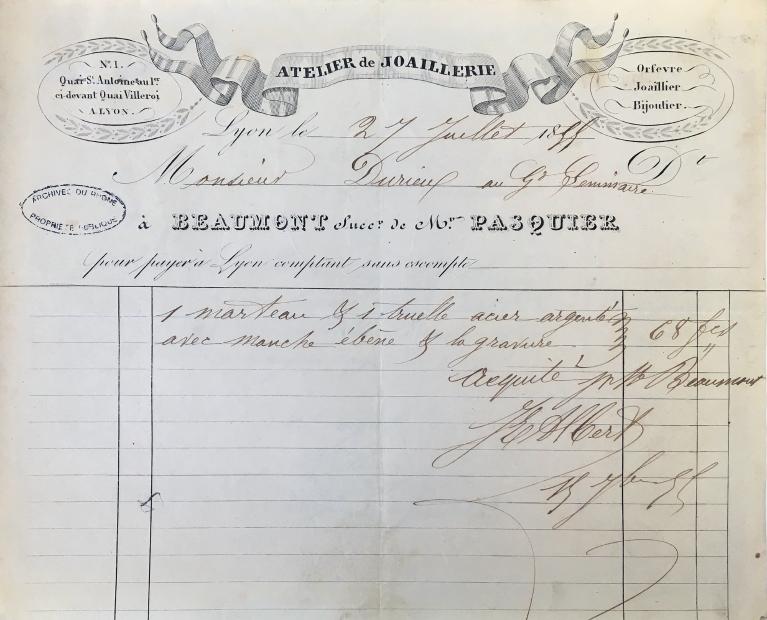 N.º 1.
Quai S.t Antoine au 1.er
ci-devant Quai Villeroi
A LYON.
ATELIER de JOAILLERIE
Orfevre
Joaillier
Bijoutier
Lyon le 27 Juillet 1855
Monsieur Durieux au G.d Seminaire D.t
ARCHIVES DU RHONE
PROPRIETE PUBLIQUE
à BEAUMONT Succ.r de M.r PASQUIER
pour payer à Lyon comptant sans escompte
1 marteau & 1 truelle acier argenté 68 fcs
avec manche ébène & la gravure "
acquité pr Mr Beaumont
Albert
15 7bre 55